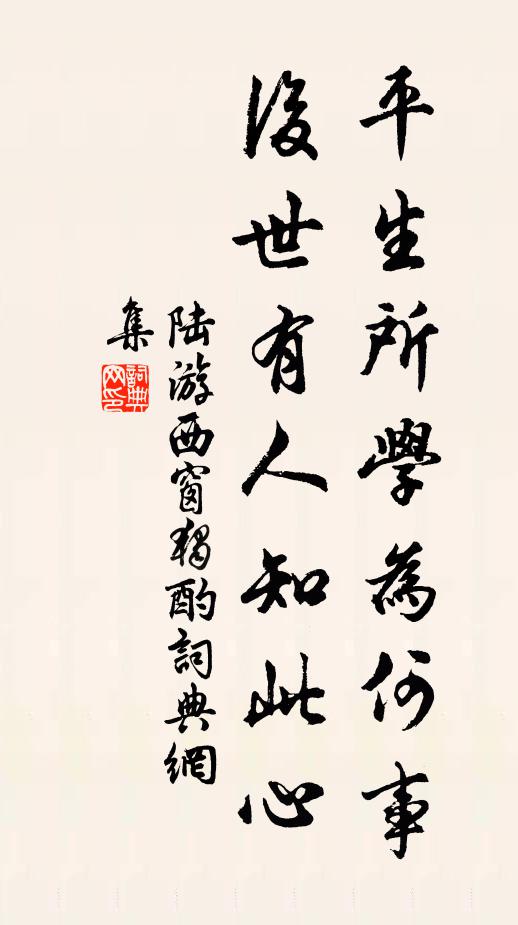 平生所學為何事
後世有人知此心
陸游西窗獨酌詞典網
集
詞典
网印